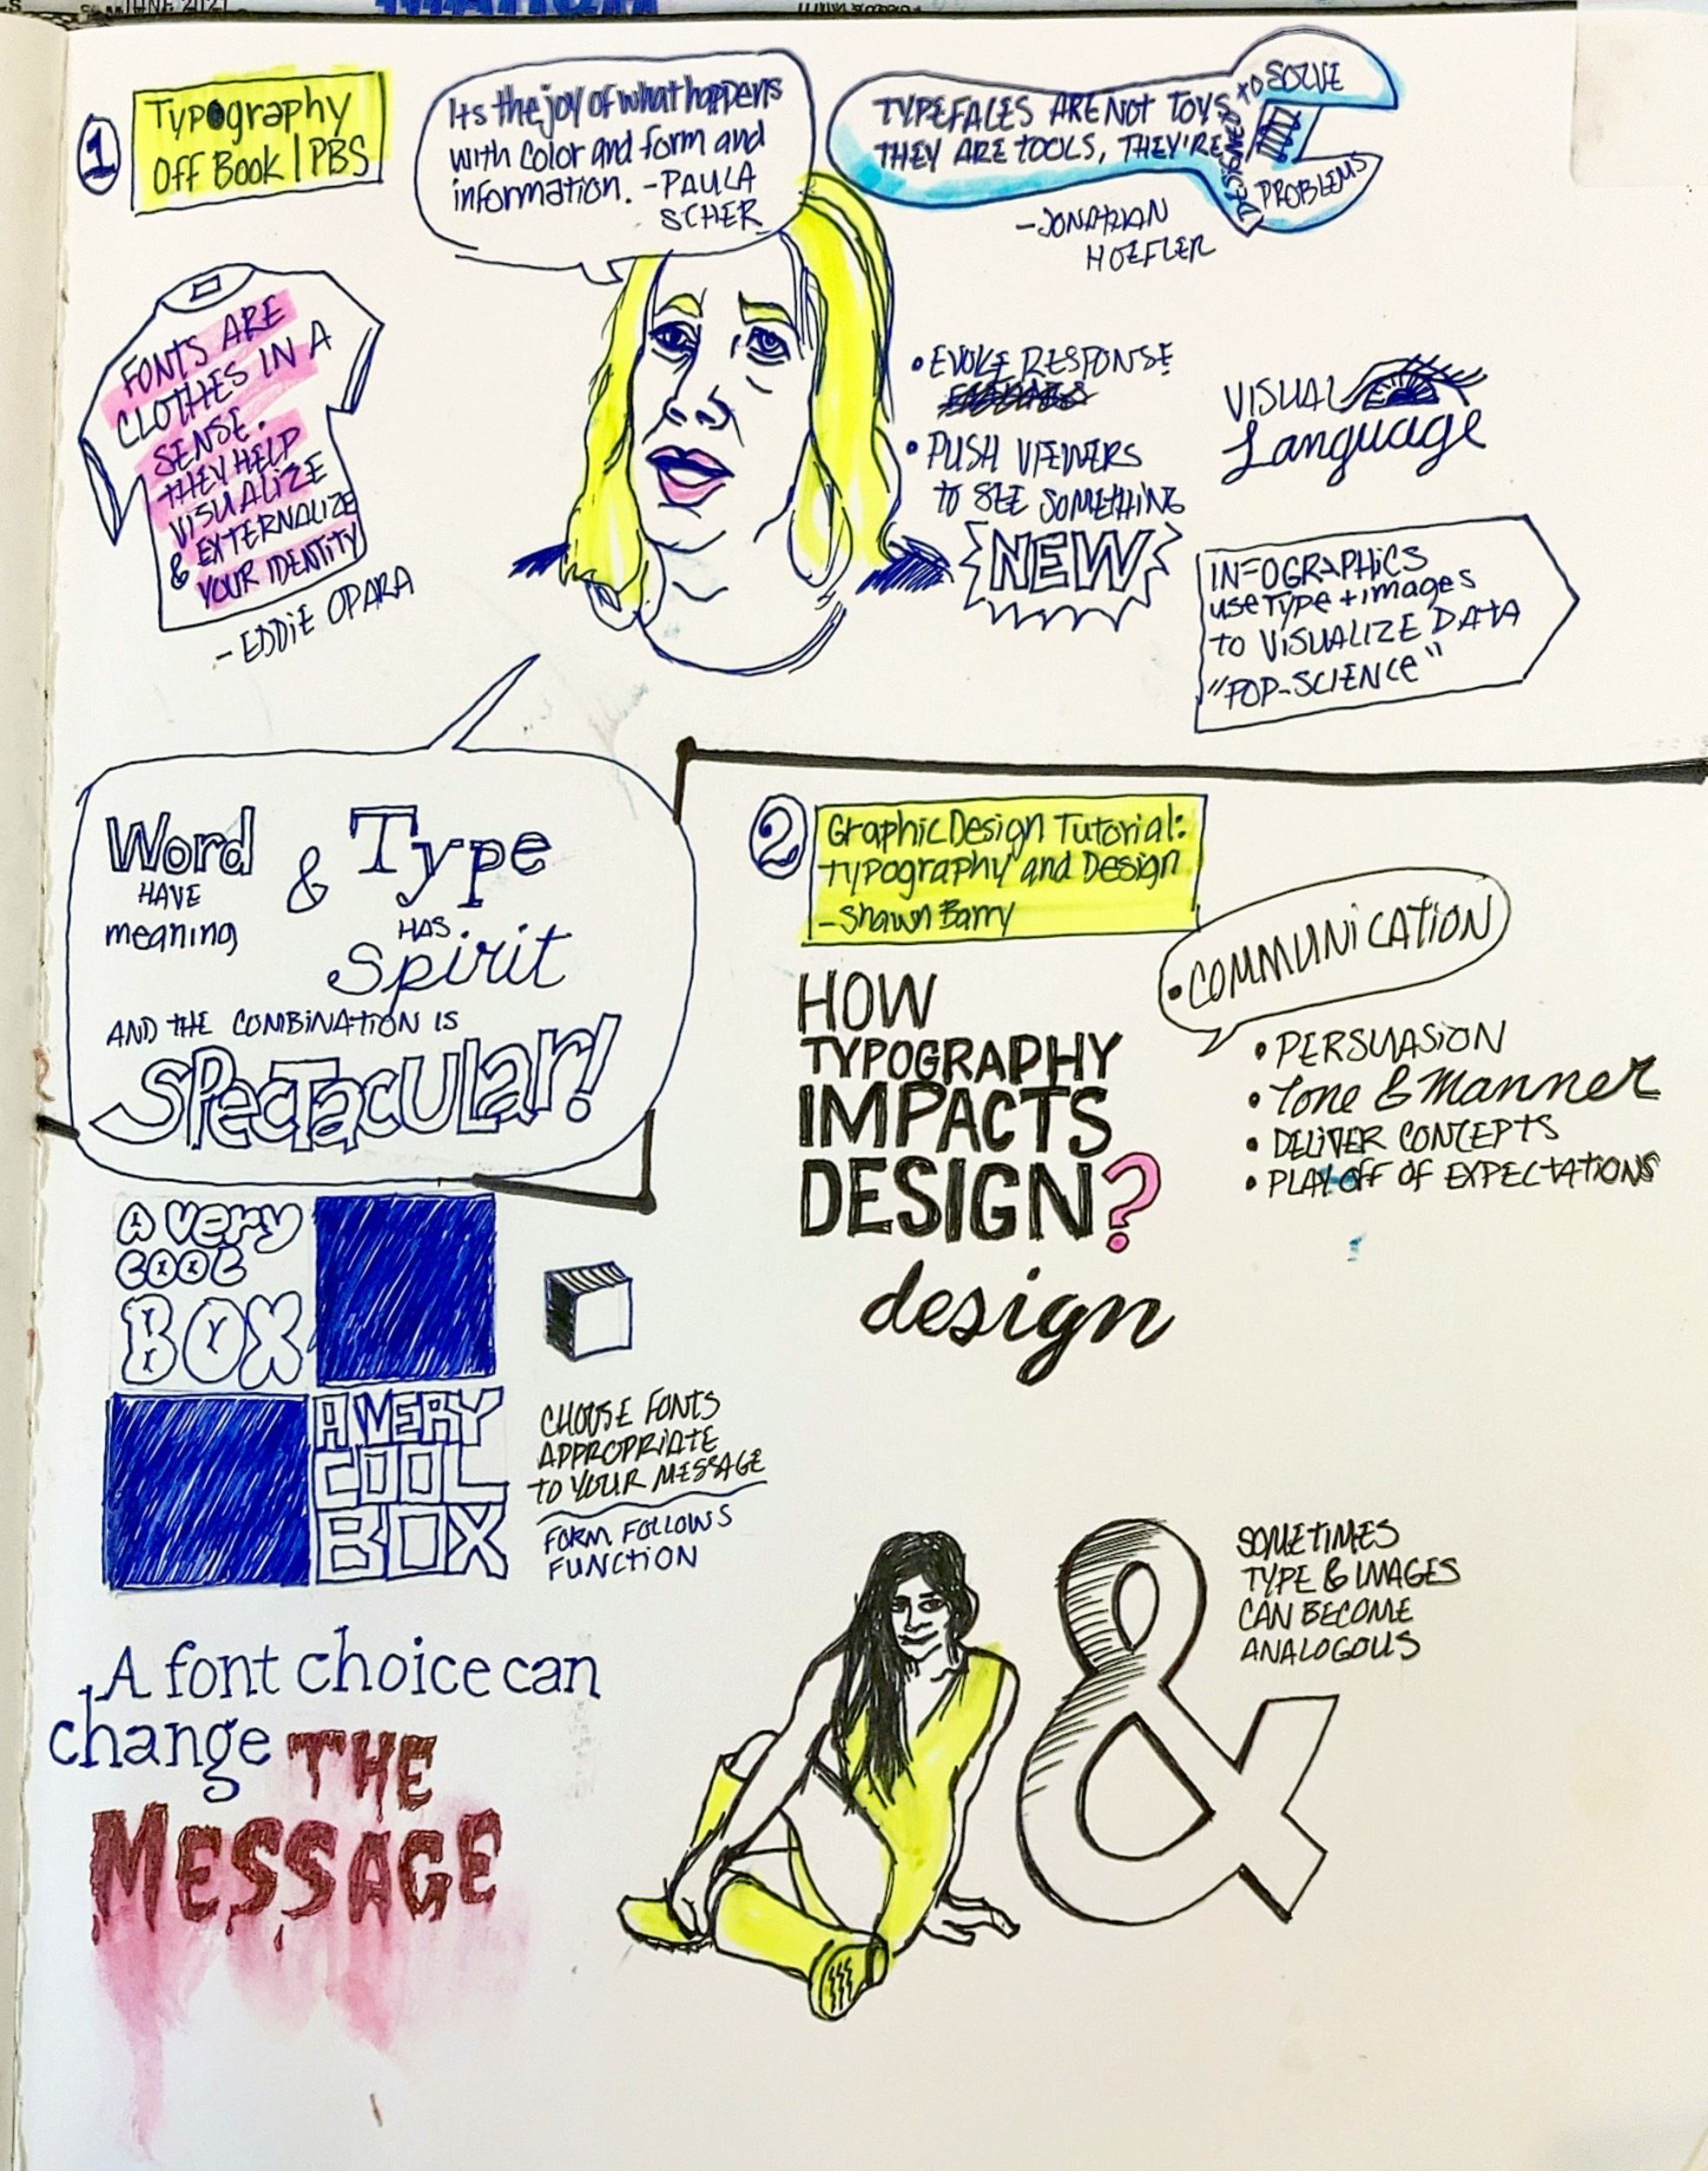 JUNE 2021
1
Typography
Off Book | PBS
Its the joy of what happens
with color and form and
information. -PAULA
SCHER
TYPEFACES ARE NOT TOYS
THEY ARE TOOLS, THEY'RE
DESIGNED
TO SOLVE
PROBLEMS
-JONATHAN
HOEFLER
FONTS ARE
CLOTHES IN A
SENSE.
THEY HELP
VISUALIZE
& EXTERNALIZE
YOUR IDENTITY
- EDDIE OPARA
• EVOKE RESPONSE
• PUSH VIEWERS
TO SEE SOMETHING
NEW
VISUAL
Language
INFOGRAPHICS
use Type + images
to VISUALIZE DATA
"POP-SCIENCE"
Word & Type
HAVE HAS
meaning Spirit
AND THE COMBINATION IS
SPECTACULAR!
A very
COOL
BOX
A VERY
COOL
BOX
CHOOSE FONTS
APPROPRIATE
TO YOUR MESSAGE
FORM FOLLOWS
FUNCTION
A font choice can
change THE
MESSAGE
2
Graphic Design Tutorial:
Typography and Design
- Shawn Barry
HOW
TYPOGRAPHY
IMPACTS
DESIGN?
design
• COMMUNICATION
• PERSUASION
• Tone & Manner
• DELIVER CONCEPTS
• PLAY OFF OF EXPECTATIONS
&
SOMETIMES
TYPE & IMAGES
CAN BECOME
ANALOGOUS